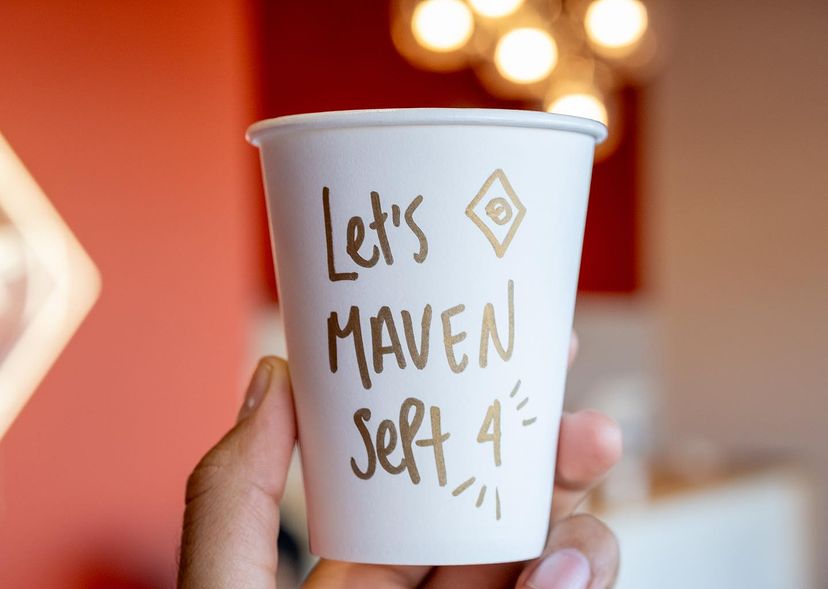 Let's
MAVEN
Sept 4